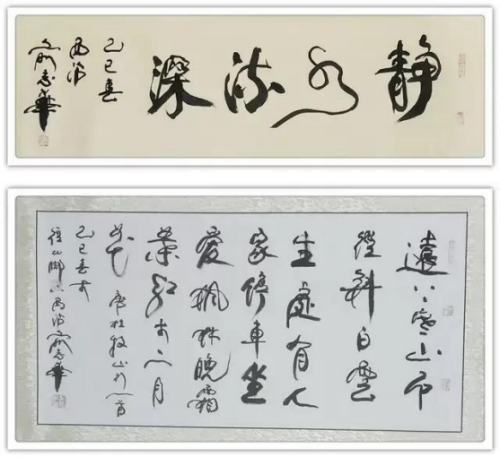 静水流深
己巳春
遠上寒山石
徑斜白雲
生處有人
家停車坐
愛楓林晚霜
葉紅於二月
花 唐杜牧山行一首
己巳春於